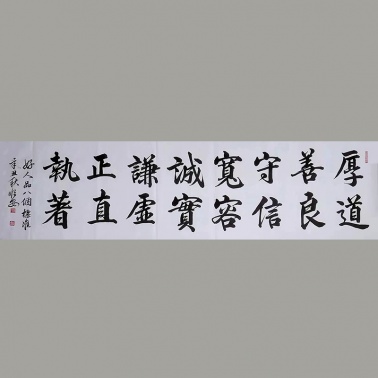 厚道
善良
守信
寬容
誠實
謙虛
正直
執著
好人品八個標准
辛丑秋